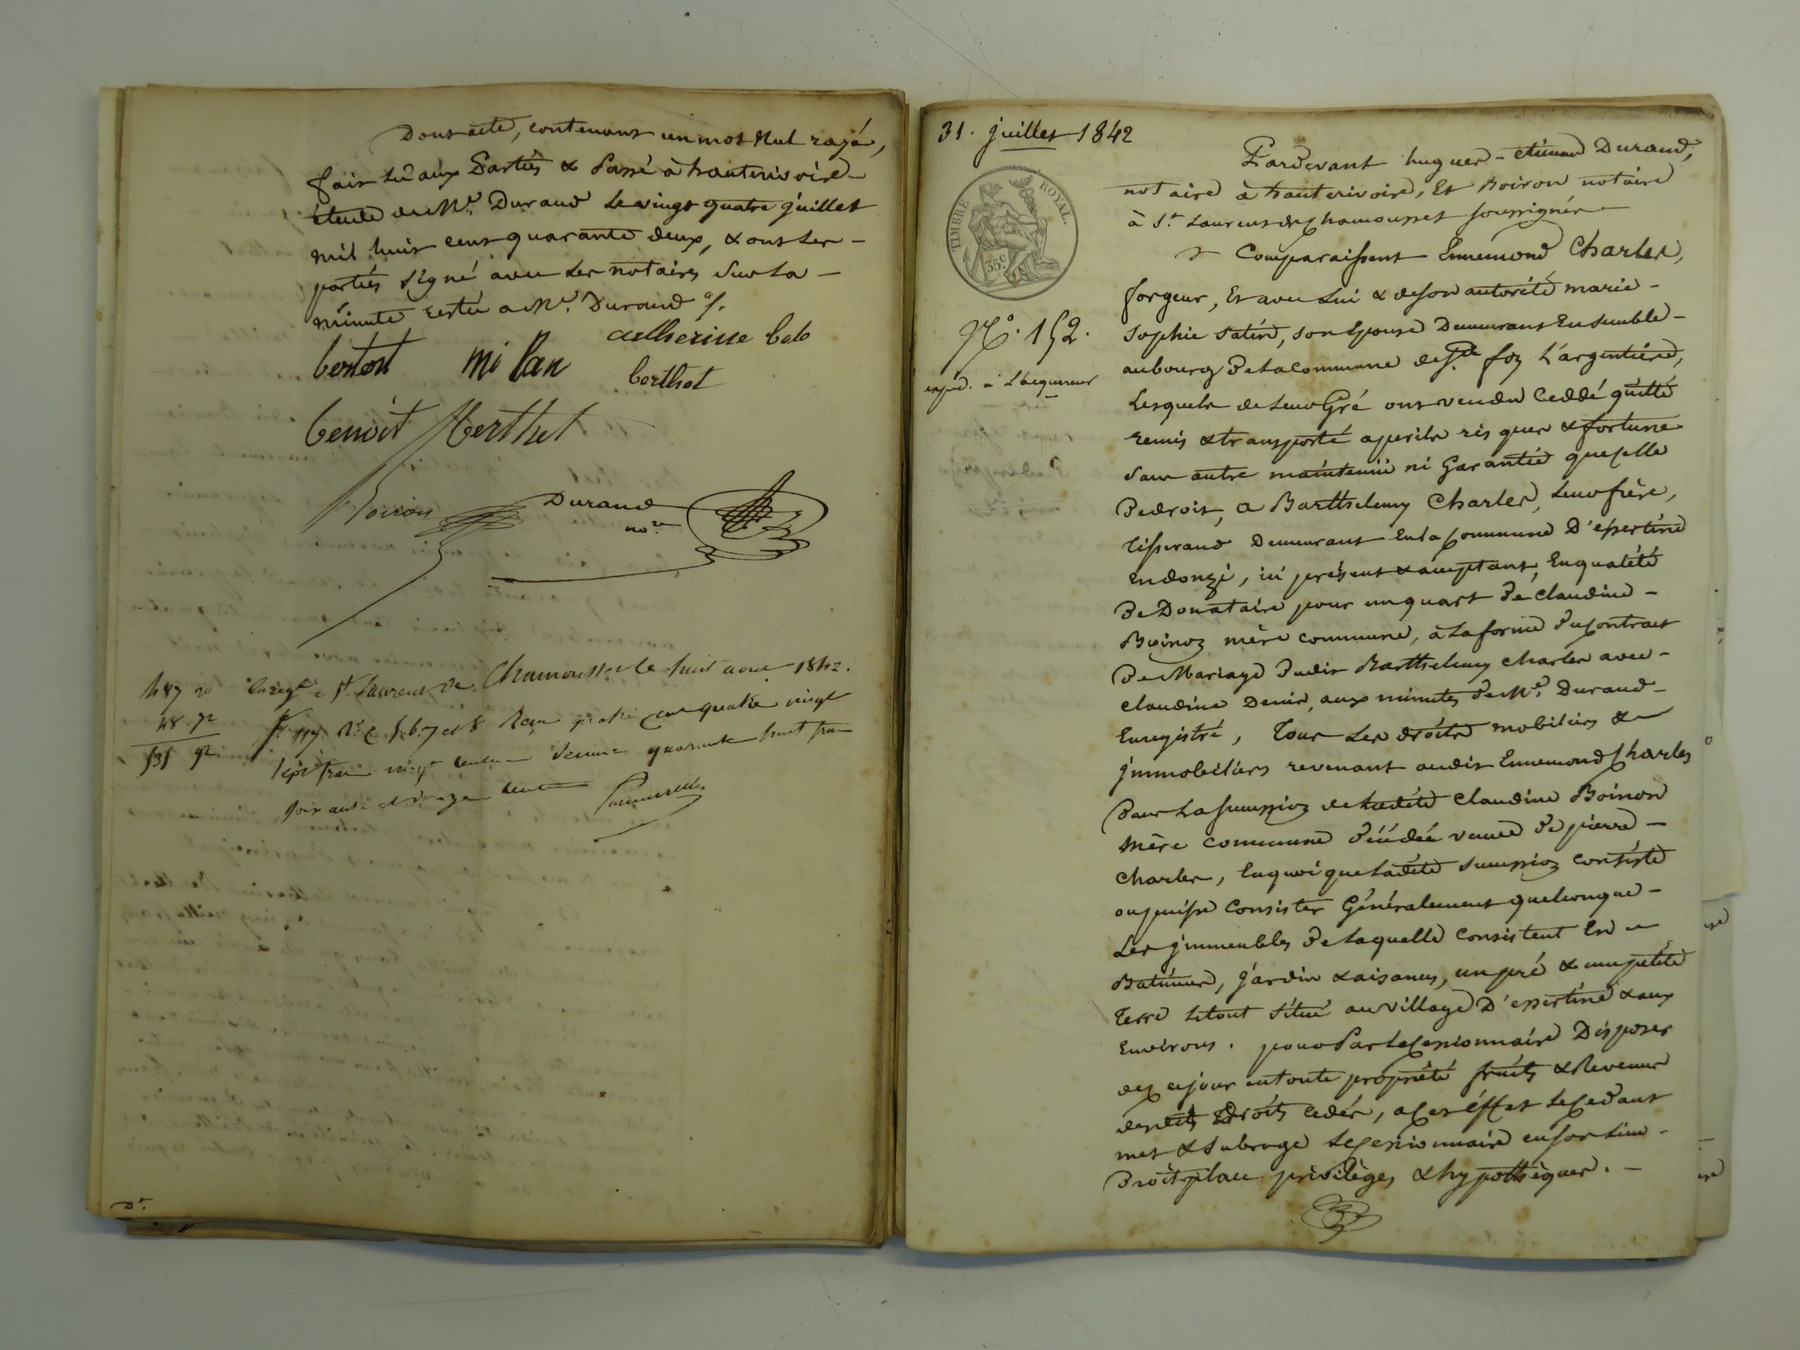 Dont acte, contenant un mot Nul rayé,
fait Lu aux Parties & Passé à hauterivoire
Etude de Me. Durand Le vingt quatre juillet
mil huit cent quarante deux, & ont Les
parties signé avec Les notaires sur La
minute restée a Me. Durand
bertost mi lan catherine
berthot
benoit Berthet
Boiron Durand
nore
487 20 Enregé à St. Laurent de Chamousset le huit aout 1842.
48. 72 fo 119. Ro C. 5. 6. 7 et 8 Reçu quatre cent quatre vingt
535 92 sept francs vingt centimes décime quarante huit francs
soixante et douze centimes
Dt.
31. juillet 1842
TIMBRE ROYAL.
35c.
No. 152.
expéd. à L'acquereur
Pardevant hugues-etienne Durand,
notaire à hauterivoire, Et Boiron notaire
à St. Laurent de Chamousset soussignés
Comparaissent Ennemond Charles,
forgeur, Et avec Lui & de son autorité marie-
sophie satin, son Epouse Demeurant Ensemble
au bourg De La commune de Ste. foy L'argentière,
Lesquels de Leur Gré ont vendu Ceddé quitté
remis & transporté a perils risques & fortune
sans autre maintenüe ni Garantie que celle
De droit, a Barthelemy Charles, Leur frère,
tisserand Demeurant En La Commune D'essertine
en donzi, ici présent & acceptant, En qualité
De Donataire pour un quart De claudine
Boinon mère commune, à La forme Du Contrat
De Mariage Dudit Barthelemy Charles avec
claudine Denis, aux minutes De Me. Durand
Enregistré, Tous Les droits mobiliers &
jmmobiliers revenant audit Ennemond Charles
Dans La succession de Ladite Claudine Boinon
mère commune Décédée veuve De pierre
Charles, En quoi que Ladite succession consiste
ou puisse consister Généralement quelconque
Les jmmeubles De Laquelle consistent En
Batiment, jardin & aisances, un pré & une petite
terre Le tout situé au village D'essertine & aux
Environs. pour Par Le Cessionnaire Disposer
dez ce jour en toute propriété fruits & Revenus
desdits Droits cedés, a cet éffet Le Cedant
met & subroge Le Cessionnaire en son Lieu
Droit place privilèges & hypothèques.